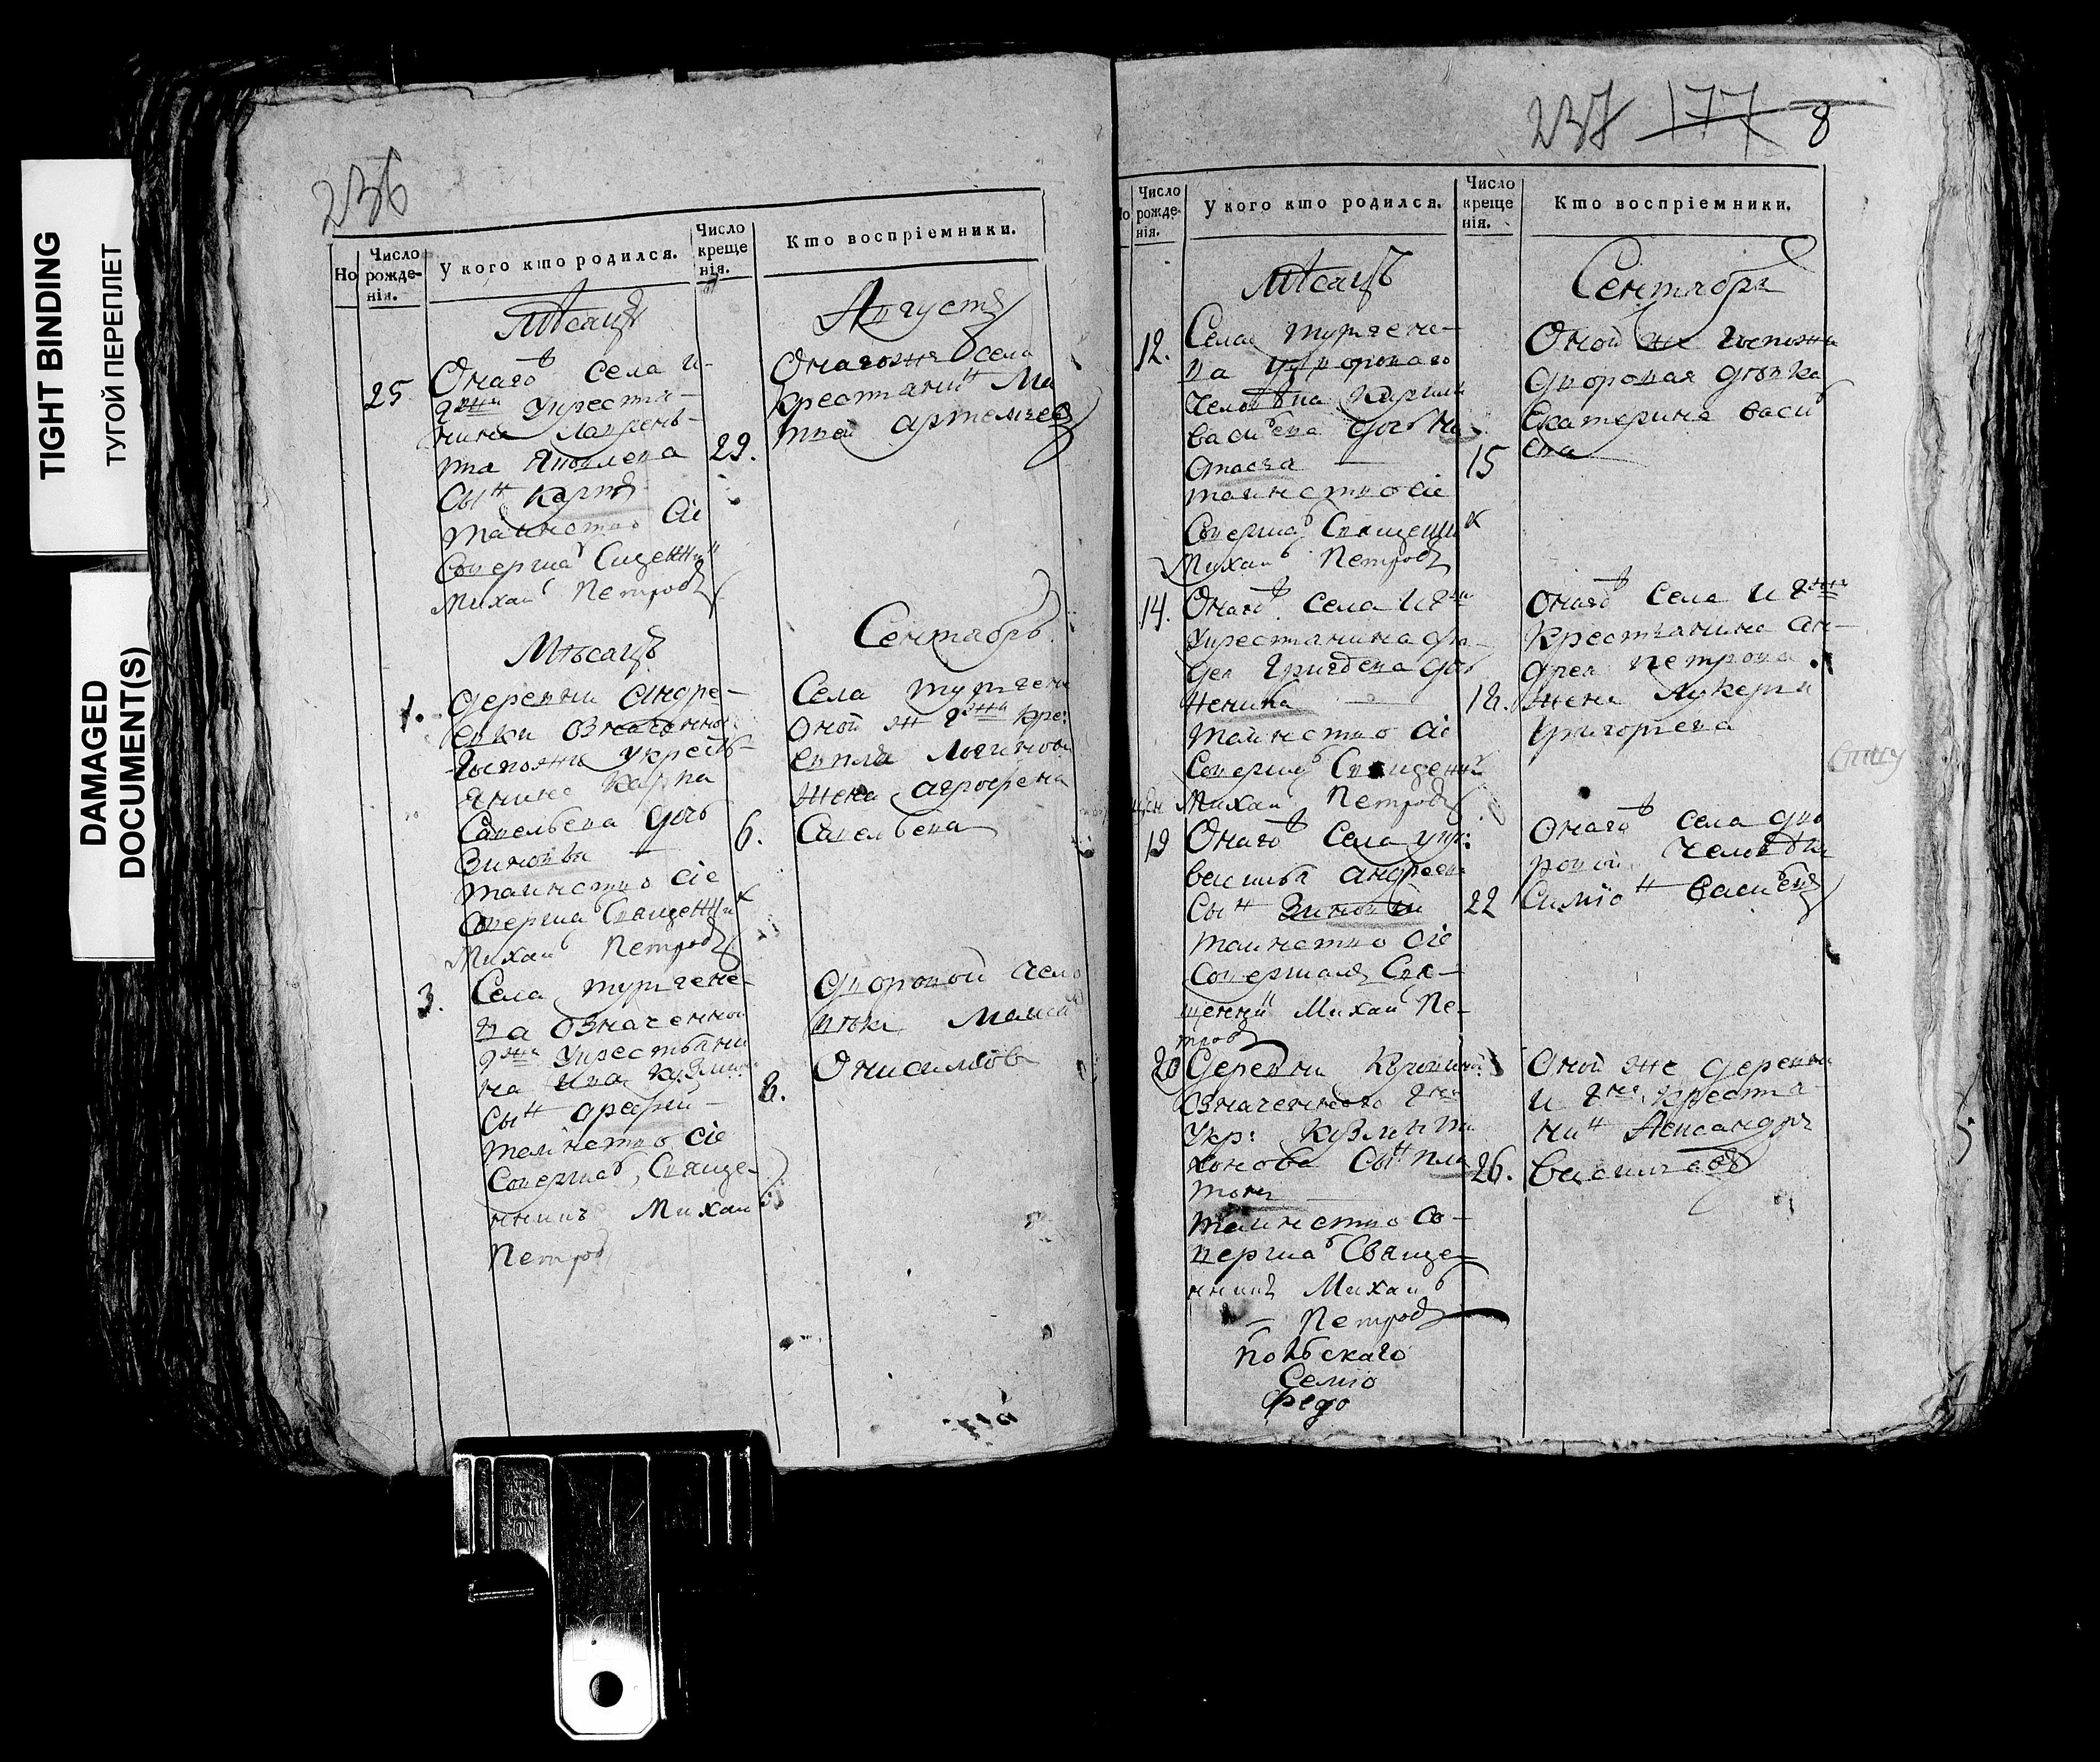 TIGHT BINDING
ТУГОЙ ПЕРЕПЛЕТ
DAMAGED
DOCUMENT(S)
236
Но
Число рожде-нія.
У кого кто родился.
Число креще нія.
Кто воспріемники.
Мѣсяцъ
Августъ
25
Онагоѣ села и
гжи укрестья-
нина Лаврень-
тіа Яковлева
Сынъ Карпъ
таинство сіе
Соверша
Михаи Петровъ
29.
Онагожъ села
Крестянинъ Ма
твей артемьевъ
Мѣсяцъ
Сентябрь
1.
деревни андре-
евки означенной
Госпожи укресть-
янина Карпа
Савельева дочь
Зиновья
таинство сіе
Соверша Священник
Михаи Петровъ
6.
Села тургене
оной ж гжи кре:
Логинова
жена агрофена
Савельева
3.
Села тургене-
ва означенной
гжи укрестьяни
на
Сынъ арефий
таинство сіе
Соверша Священ
нникъ Михаи
Петров
8.
дворовой чело
вѣкъ
Онисимовъ
237 177 8
Но
Число рожде-нія.
У кого кто родился.
Число креще нія.
Кто воспріемники.
Мѣсяцъ
Сентябрь
12.
Села тургене-
ва у дворового
человѣка Кирила
васильева дочь На
стасья
таинство сіе
Соверша Священник
Михаи Петровъ
15
Оной же госпожи
дворовая дѣвка
Екатерина васи
ева
14.
Онагоѣ села и гжи
укрестьянина фа-
дея дочь
таинство сіе
Соверша Священни
Михаи Петровъ
18.
Онагоѣ села и гжи
Крестьянина ан-
дрея петрова
жена Лукерья
григорьева
19
Онагоѣ села укр:
василья андреева
Сынъ Зиновей
таинство сіе
Совершалъ Свя-
щенни Михаи Пе-
тровъ
22
Онагоѣ села дво
ровой человѣкъ
Симіонъ васильевъ
20
деревни
означенного
укр: Кузмы ти
хонова Сынъ пла
тонъ
таинство со-
верша Священ
нникъ Михаи
Петровъ
26.
Оной же деревни
и крестья
нинъ Александръ
василиевъ
Семіо
Федо